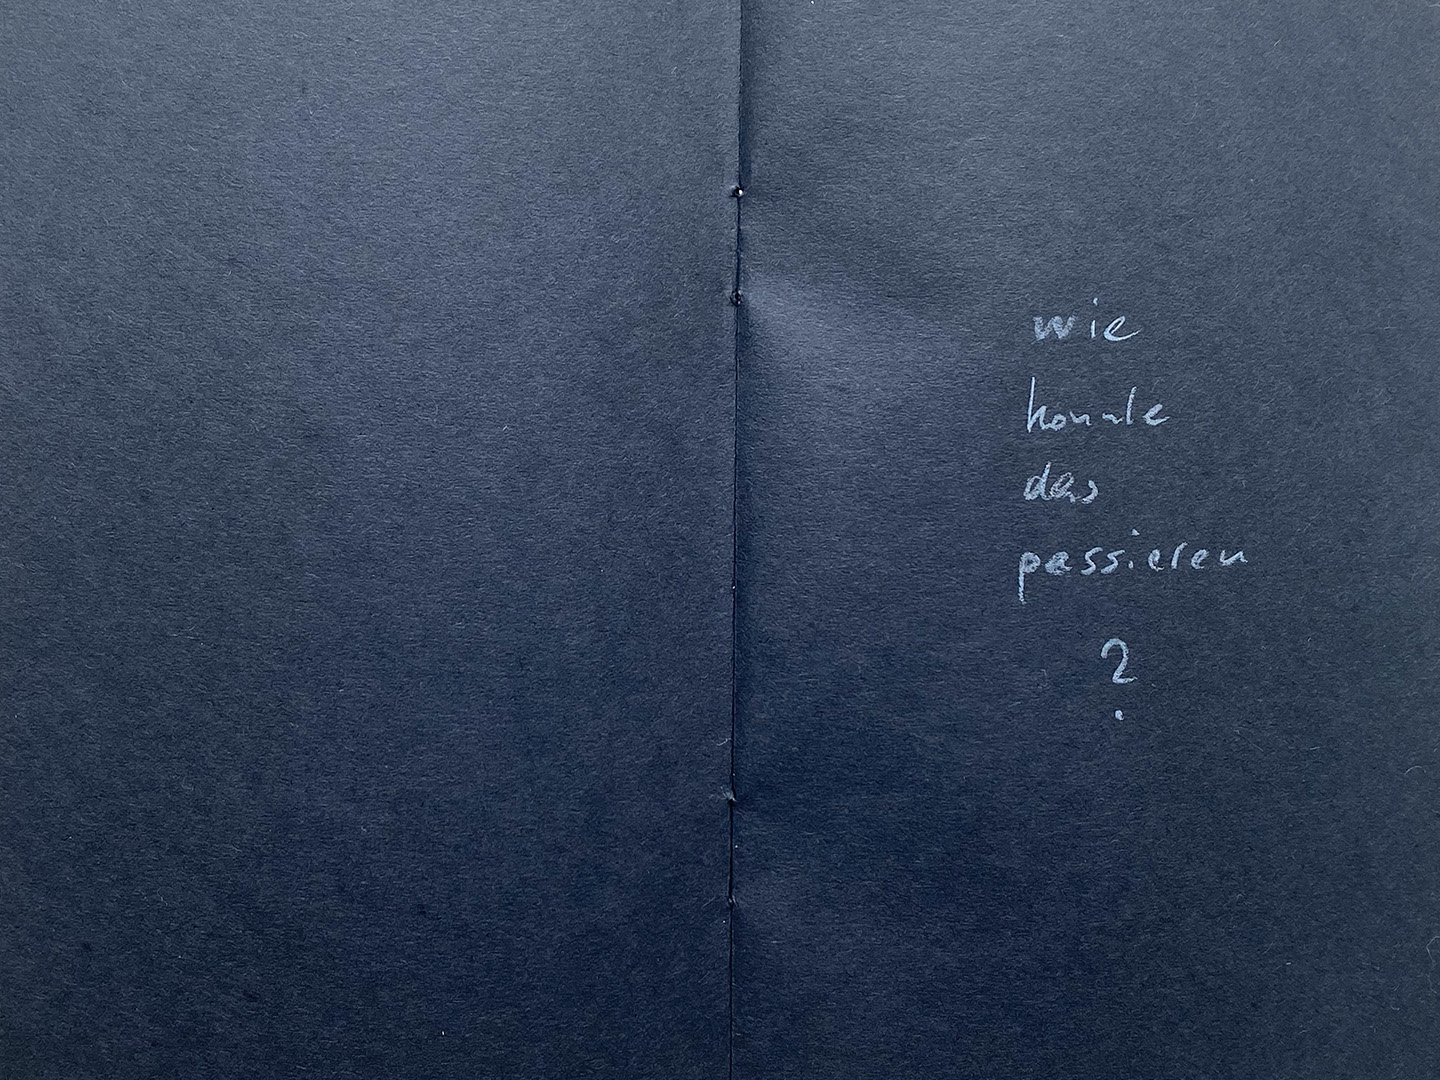 wie
konnte
das
passieren
?